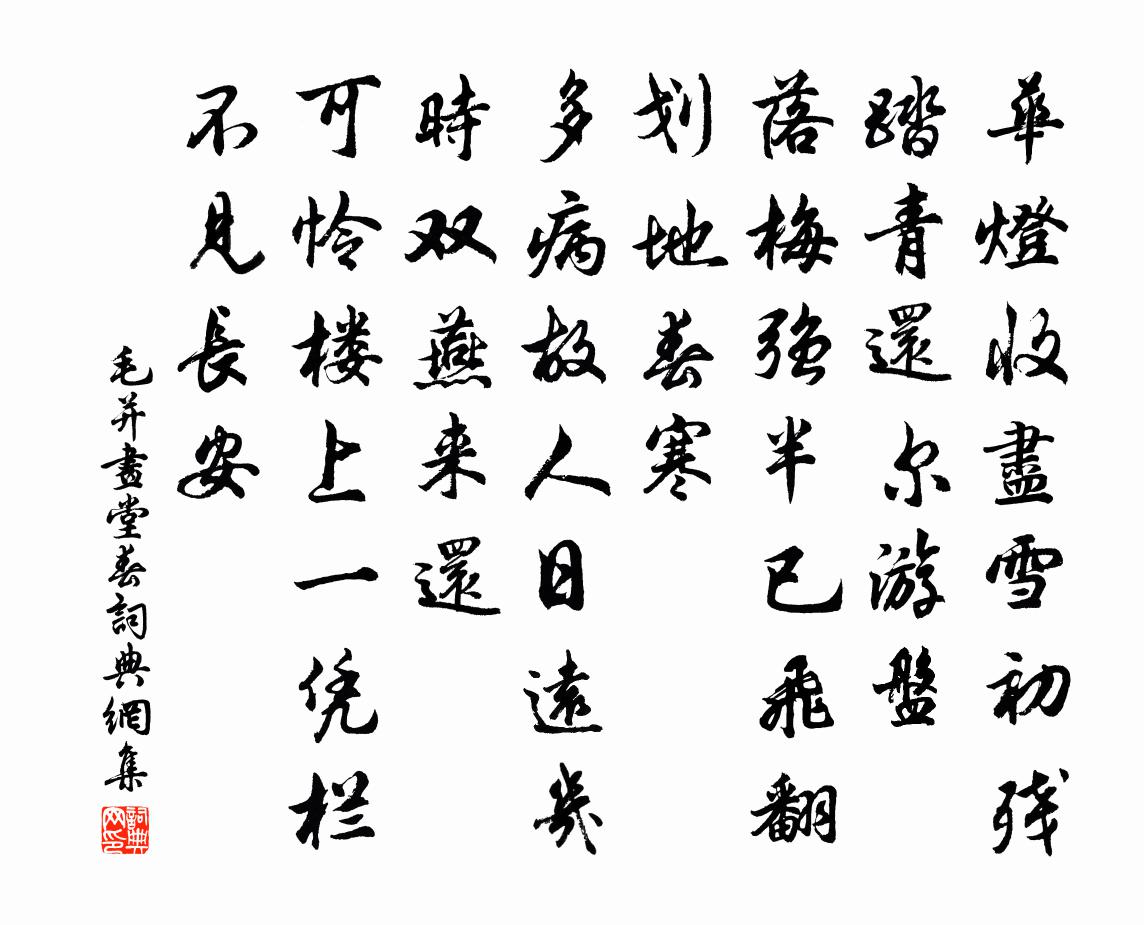 華燈收盡雪初残
踏青還尔游盤
落梅強半已飛翻
划地春寒
多病故人日遠幾
時双燕来還
可怜楼上一凭栏
不見長安
毛并畫堂春詞典網集
詞典网印